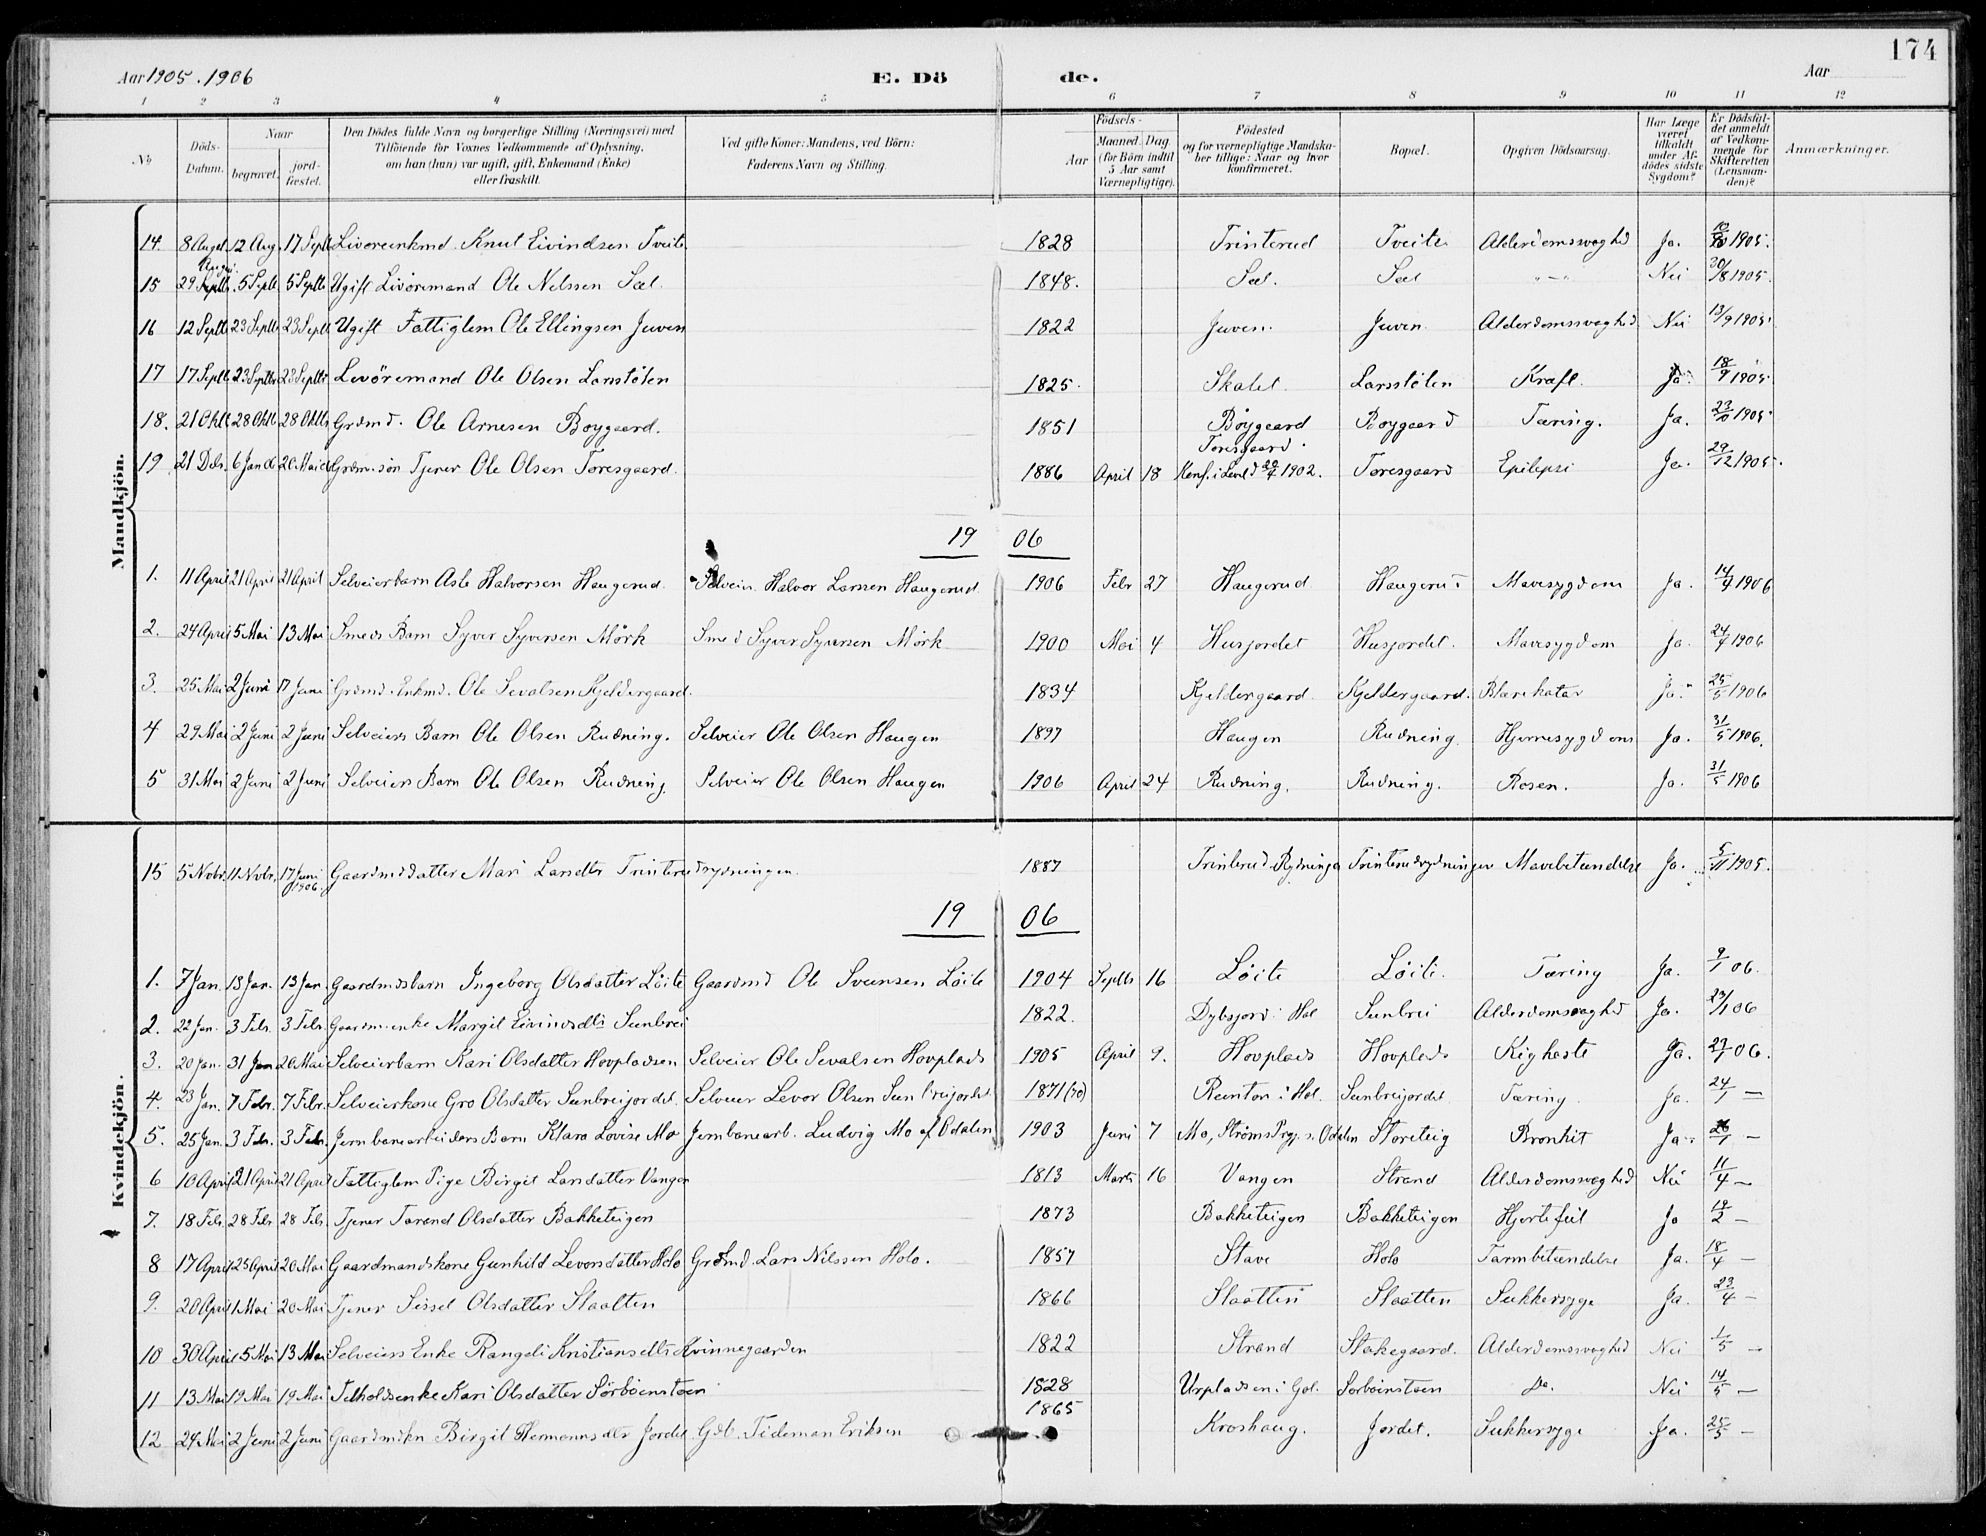 174
Aar 1905. 1906 E. Dö de. Aar
1 2 3 4 5 6 7 8 9 10 11 12
No
Döds-Datum.
Naar begravet. jordfæstet.
Den Dödes fulde Navn og borgerlige Stilling (Næringsvei) med Tilföiende for Voxnes Vedkommende af Oplysning, om han (hun) var ugift, gift, Enkemand (Enke) eller fraskilt.
Ved gifte Koner: Mandens, ved Börn: Faderens Navn og Stilling.
Födsels-
Aar
Maaned. Dag. (for Börn indtil 5 Aar samt Værnepligtige).
Födested og for værnepligtige Mandskaber tillige: Naar og hvor konfirmeret.
Bopæl.
Opgiven Dödsaarsag.
Har Læge været tilkaldt under Afdödes sidste Sygdom?
Er Dödsfaldet anmeldt af Vedkommende for Skifteretten (Lensmanden)?
Anmærkninger.
Mandkjön.
14. 8 Augst. 12 Aug. 17 Septb Livøreenkmd. Knut Eivindsen Tveite 1828 Trinterud Tveite Alderdomssvaghed Ja. 10/8 1905.
15 29 August 5 Septb 5 Septb Ugift Livøremand Ole Nelssen Sæl. 1848. Sæl. Sæl " — " Nei 30/8 1905.
16 12 Septb 23 Septb 23 Septb Ugift Fattiglem Ole Ellingsen Juven 1822 Juven. Juven. Alderdomssvaghed Nei 13/9 1905.
17 17 Septb 23 Septbr 23 Septbr Levöremand Ole Olsen Larsstølen 1825. Skalet. Larsstølen Kræft. Ja. 18/9 1905
18. 21 Oktb 28 Oktb 28 Oktb Grdmd. Ole Arnesen Bøygaard. 1851 Bøygaard Bøygaard Tæring. Ja. 23/10 1905.
19 21 Debr. 6 Jan 06 20 Mai 06 Grdm. søn Tjener Ole Olsen Toresgaard. 1886 April 18 Toresgaard. Konf. i Leveld 20/4 1902. Toresgaard Epilepsi Ja. 29/12 1905.
19 06
1. 11 April 21 April 21 April Selveierbarn Asle Halvorsen Haugerud. Selveier Halvor Larssen Haugerud. 1906 Febr 27 Haugerud Haugerud Mavesygdom Ja. 14/4 1906
2. 24 April 5 Mai 13 Mai Smeds Barn Syver Syversen Mörk Smed Syver Syversen Mörk 1900 Mai 4 Husjordet Husjordet. Mavesygdom Ja. 24/4 1906
3. 25 Mai 2 Juni 17 Juni Grdmd. Enkmd. Ole Sevalsen Kjeldergaard. 1834 Kjeldergaard. Kjeldergaard. Blærekatar Ja. 25/5 1906
4 29 Mai 2 Juni 2 Juni Selveiers Barn Ole Olsen Rudning. Selveier Ole Olsen Haugen 1897 Haugen Rudning. Hjernesygdom Ja. 31/5 1906.
5 31 Mai 2 Juni 2 Juni Selveiers Barn Ole Olsen Rudning Selveier Ole Olsen Haugen 1906 April 24 Rudning. Rudning. Rosen. Ja. 31/5 1906
Kvindekjön.
15 5 Nobr. 11 Nvbr. 17 Juni 1906. Gaardmdsdatter Mari Larsdtr Trinterudrydningen. 1887 Trinterud-Rydningen Trinterudrydningen Mavebetændelse Ja. 5/11 1905.
19 06
1. 7 Jan. 13 Jan. 13 Jan. Gaardmdsbarn Ingeborg Olsdatter Löite Gaardmd Ole Svensen Löite 1904 Septb 16 Löite Löite. Tæring Ja. 9/1 06.
2. 22 Jan. 3 Febr. 3 Febr. Gaardm.enke Margit Eivindsdtr Sunbrei 1822. Dybsjord i Hol Sunbrei Alderdomssvaghed Ja. 23/1 06
3. 20 Jan. 31 Jan 20 Mai Selveierbarn Kari Olsdatter Hovpladsen Selveier Ole Sevalsen Hovplads 1905 April 9. Hovplads Hovplads Kighoste Ja. 23/1 06.
4. 23 Jan. 7 Febr. 7 Febr. Selveierkone Gro Olsdatter Sunbreijordet. Selveier Levor Olsen Sunbreijordet 1871 (70) Reinton i Hol. Sunbreijordet Tæring. Ja. 24/1 —
5. 25 Jan. 3 Febr. 3 Febr. Jernbanearbeiders Barn Klara Lovise Mo Jernbanearb. Ludvig Mo af Odalen 1903 Juni 7 Mo, Ströms Prgj. s. Odalen Storeteig Bronkit Ja. 26/1 —
6 10 April 21 April 21 April Fattiglem Pige Birgit Larsdatter Vangen 1813 Marts 16 Vangen Strand Alderdomssvaghed Nei 11/4 —
7. 18 Febr. 28 Febr 28 Febr. Tjener Torand Olsdatter Bakketeigen 1873 Bakketeigen Bakketeigen Hjertefeil Ja 19/2 —
8 17 April 25 April 20 Mai Gaardmandskone Gunhild Levorsdatter Holo Grdmd. Lars Nilssen Holo. 1857 Stave Holo Tarmbetændelse Ja. 18/4 —
9. 20 April 1 Mai 20 Mai Tjener Sissel Olsdatter Slaatten 1866 Slaatten Slaatten Sukkersyge Ja. 23/4 —
10 30 April 5 Mai 13 Mai Selveiers Enke Rangdi Kristiansdtr Kvinnegaarden 1822 Strand Stakegaard. Alderdomssvaghed Nei 1/5 —
11 13 Mai 19 Mai 19 Mai Selholdsenke Kari Olsdatter Sörbøenstøen 1828 Urpladsen i Gol. Sorboinstøen Do. Nei 14/5 —
12 24 Mai 2 Juni 2 Juni Gaardmdkn Birgit Hermannsdtr Jordet Gdb. Tideman Eriksen 1865 Kroshaug. Jordet. Sukkersyge Ja. 25/5 —